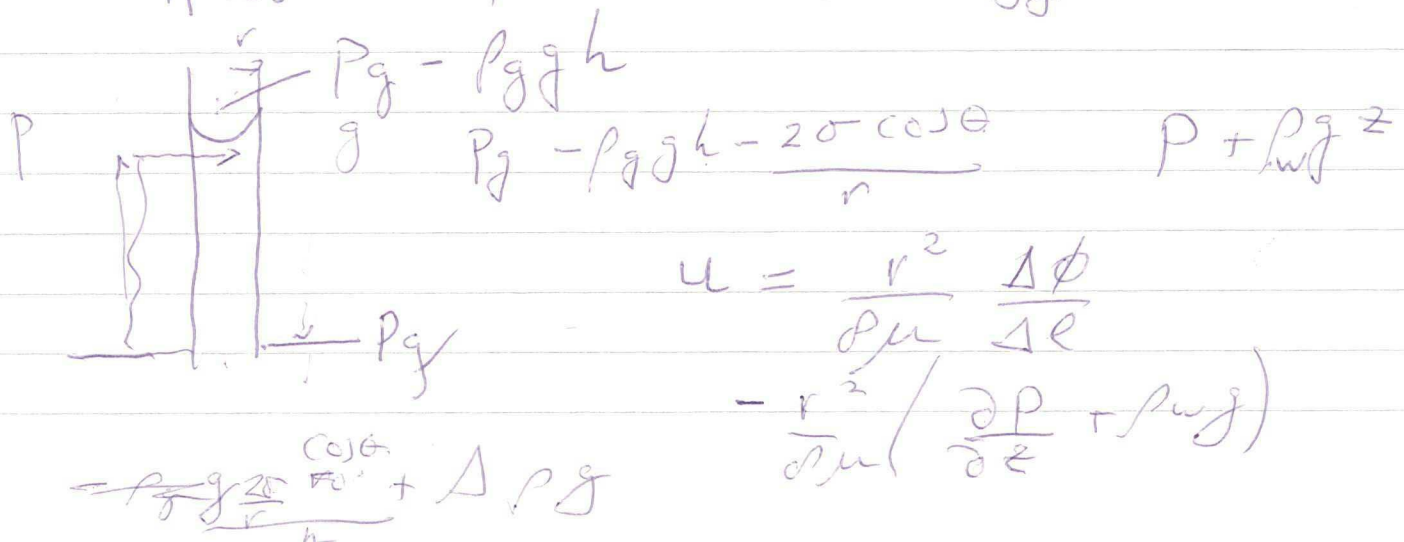 r
P_g - ρ_g g h
P g P_g - ρ_g g h - \frac{2σ cosθ}{r} P + ρ_w g z
u = \frac{r^2}{8μ} \frac{Δϕ}{Δl}
P_g
- \frac{r^2}{8μ} ( \frac{∂P}{∂z} + ρ_w g )
\frac{\frac{2σ}{r} cosθ}{h} + Δρg